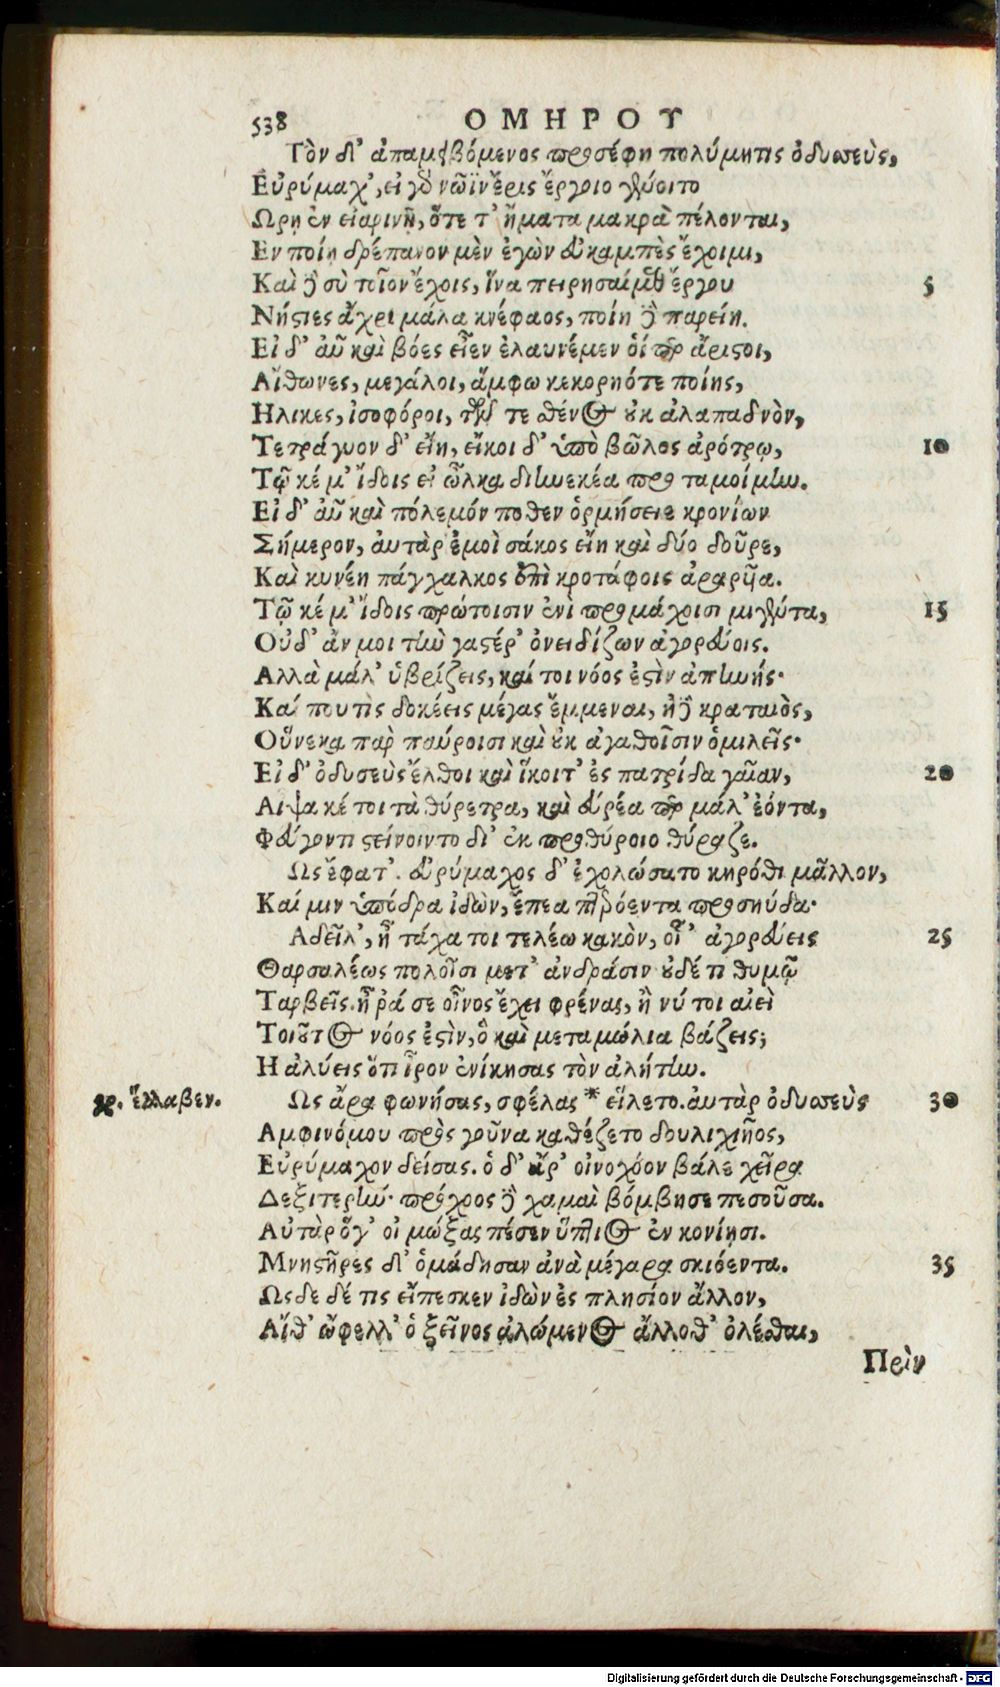 538 ΟΜΗΡΟΥ
Τὸν δ' ἀπαμειβόμενος προσέφη πολύμητις ὀδυσσεὺς,
Εὐρύμαχ', εἰ γὰρ νῶϊν ἔρις ἔργοιο γένοιτο
Ωρῃ ἐν εἰαρινῇ, ὅτε τ' ἤματα μακρὰ πέλονται,
Εν ποίῃ δρέπανον μὲν ἐγὼν εὐκαμπὲς ἔχοιμι,
Καὶ δὲ σὺ τοῖον ἔχοις, ἵνα πειρησαίμεθ' ἔργου 5
Νήστιες ἄχρι μάλα κνέφαος, ποίη δὲ παρείη.
Εἰ δ' αὖ καὶ βόες εἶεν ἐλαυνέμεν οἵ περ ἄριστοι,
Αἴθωνες, μεγάλοι, ἄμφω κεκορηότε ποίης,
Ηλικες, ἰσοφόροι, τῶν τε σθένος οὐκ ἀλαπαδνὸν,
Τετράγυον δ' εἴη, εἴκοι δ' ὑπὸ βῶλος ἀρότρῳ, 10
Τῷ κέ μ' ἴδοις εἰ ὦλκα διηνεκέα προταμοίμην.
Εἰ δ' αὖ καὶ πόλεμόν ποθεν ὁρμήσειε κρονίων
Σήμερον, αὐτὰρ ἐμοὶ σάκος εἴη καὶ δύο δοῦρε,
Καὶ κυνέη πάγχαλκος ἐπὶ κροτάφοις ἀραρυῖα.
Τῷ κέ μ' ἴδοις πρώτοισιν ἐνὶ προμάχοισι μιγέντα, 15
Οὐδ' ἄν μοι τὴν γαστέρ' ὀνειδίζων ἀγορεύοις.
Αλλὰ μάλ' ὑβρίζεις, καί τοι νόος ἐστὶν ἀπηνής·
Καί πού τις δοκέεις μέγας ἔμμεναι, ἠδὲ κραταιὸς,
Οὕνεκα παρ παύροισι καὶ οὐκ ἀγαθοῖσιν ὁμιλεῖς·
Εἰ δ' ὀδυσεὺς ἔλθοι καὶ ἵκοιτ' ἐς πατρίδα γαῖαν, 20
Αιψα κέ τοι τὰ θύρετρα, καὶ εὐρέα περ μάλ' ἐόντα,
Φεύγοντι στείνοιντο δι' ἐκ προθύροιο θύραζε.
Ως ἔφατ'. εὐρύμαχος δ' ἐχολώσατο κηρόθι μᾶλλον,
Καί μιν ὑπόδρα ἰδὼν, ἔπεα πτερόεντα προσηύδα·
Αδεῖλ', ἦ τάχα τοι τελέω κακὸν, οἷ' ἀγορεύεις 25
Θαρσαλέως πολοῖσι μετ' ἀνδράσιν οὐδέ τι θυμῷ
Ταρβεῖς. ἦ ῥά σε οἶνος ἔχει φρένας, ἤ νύ τοι αἰεὶ
Τοιοῦτος νόος ἐστὶν, ὃ καὶ μεταμώλια βάζεις;
Η ἀλύεις ὅτι ἶρον ἐνίκησας τὸν ἀλήτην.
γρ. ἔλλαβεν. Ως ἄρα φωνήσας, σφέλας * εἵλετο. αὐτὰρ ὀδυσσεὺς 30
Αμφινόμου πρὸς γοῦνα καθέζετο δουλιχιῆος,
Εὐρύμαχον δείσας. ὁ δ' ἄρ' οἰνοχόον βάλε χεῖρα
Δεξιτερήν· πρόχοος δὲ χαμαὶ βόμβησε πεσοῦσα.
Αὐτὰρ ὅγ' οἰμώξας πέσεν ὕπτιος ἐν κονίῃσι.
Μνηστῆρες δ' ὁμάδησαν ἀνὰ μέγαρα σκιόεντα. 35
Ωδε δέ τις εἴπεσκεν ἰδὼν ἐς πλησίον ἄλλον,
Αἴθ' ὤφελλ' ὁ ξεῖνος ἀλώμενος ἄλλοθ' ὀλέσθαι,
Πρὶν
Digitalisierung gefördert durch die Deutsche Forschungsgemeinschaft - DFG